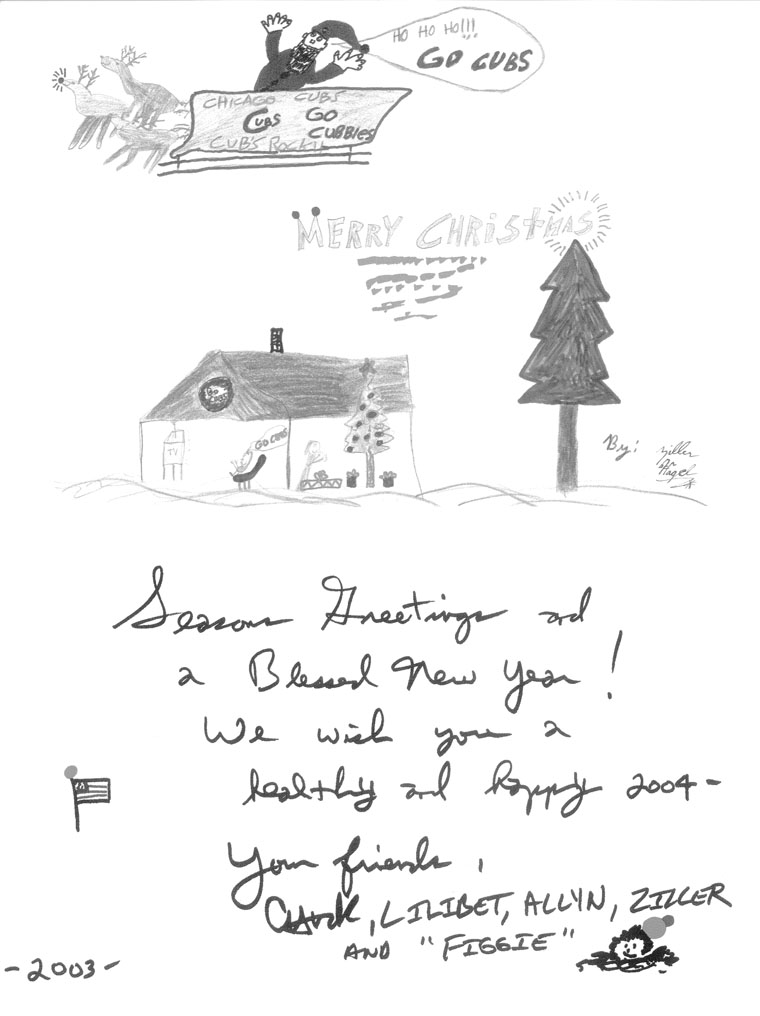 HO HO HO!!!
GO CUBS
CHICAGO CUBS
CUBS GO
CUBBIES
CUB'S ROCK!!
MERRY CHRISTMAS
GO CUBS
TV
By: Ziller
Seasons Greetings and
a Blessed New Year!
We wish you a
healthy and happy 2004-
Your friends,
Chuck, LILIBET, ALLYN, ZILLER
AND "FIGGIE"
-2003-